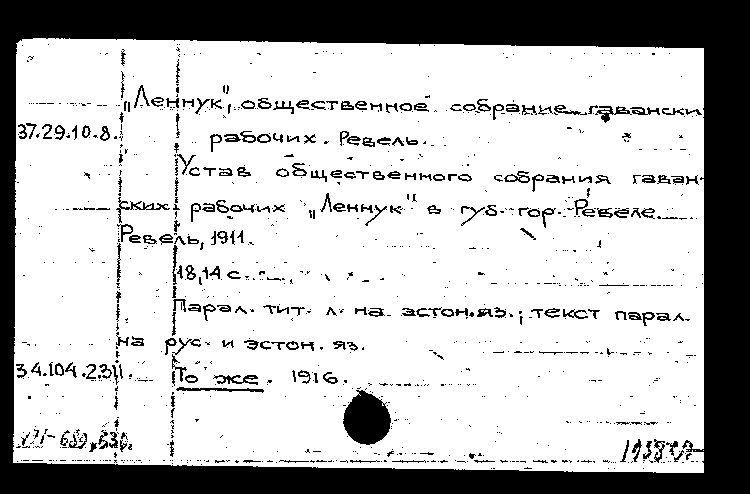 „Леннук", общественное собрание гавански
37.29.10.8. рабочих. Ревель.
Устав общественного собрания гаван-
ских рабочих „Леннук" в губ. гор. Ревеле.
Ревель, 1911.
18,14 с.
Парал. тит. л. на эстон.яз.; текст парал.
на рус. и эстон. яз.
34.104.2311. То же. 1916.